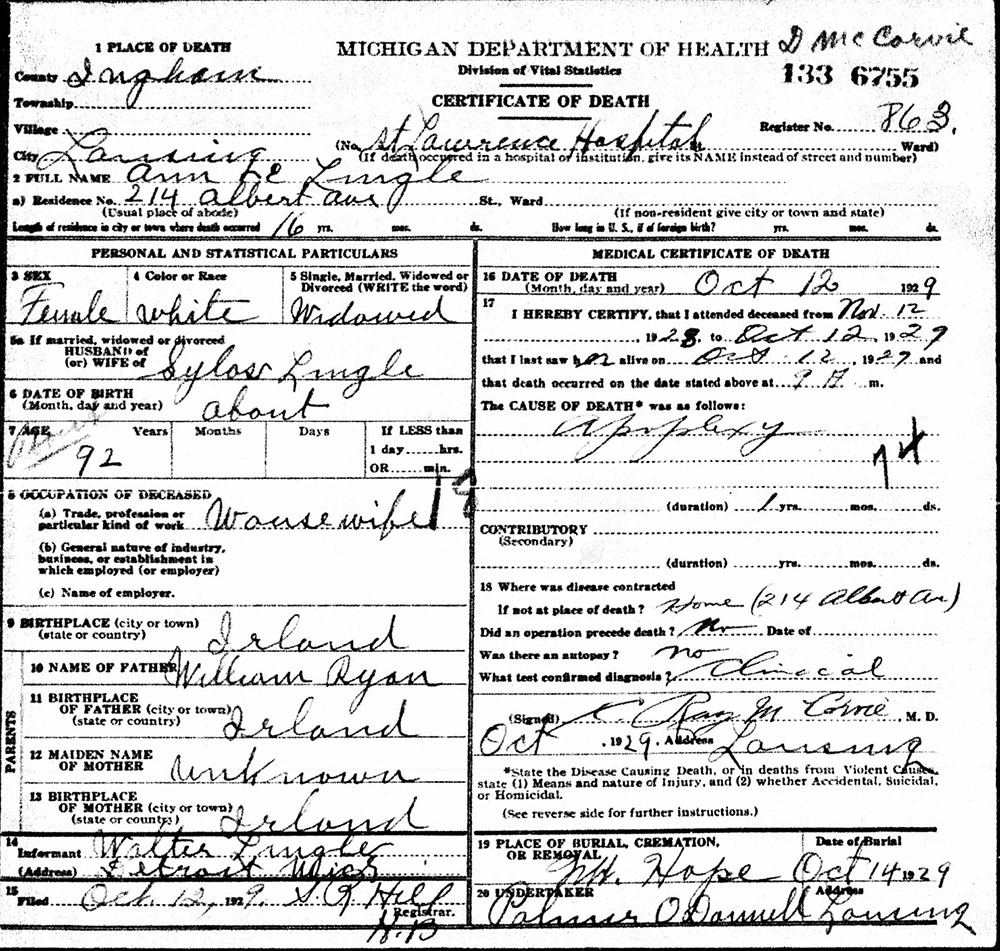 D McCorvie
1 PLACE OF DEATH
MICHIGAN DEPARTMENT OF HEALTH
County Ingham
Division of Vital Statistics
133 6755
Township
CERTIFICATE OF DEATH
Village
Register No. 863.
City Lansing (No. St Lawrence Hospital Ward)
(If death occurred in a hospital or institution, give its NAME instead of street and number)
2 FULL NAME Ann E Lingle
a) Residence No. 214 Albert ave St., Ward
(Usual place of abode) (If non-resident give city or town and state)
Length of residence in city or town where death occurred 16 yrs. mos. ds. How long in U. S., if of foreign birth? yrs. mos. ds.
PERSONAL AND STATISTICAL PARTICULARS
3 SEX
Female
4 Color or Race
white
5 Single, Married, Widowed or
Divorced (WRITE the word)
Widowed
5a If married, widowed or divorced
HUSBAND of
(or) WIFE of Sylos Lingle
6 DATE OF BIRTH
(Month, day and year) about
7 AGE Years Months Days If LESS than
92 1 day......hrs.
OR......min.
8 OCCUPATION OF DECEASED
(a) Trade, profession or
particular kind of work Wousewife
(b) General nature of industry,
business, or establishment in
which employed (or employer)
(c) Name of employer.
9 BIRTHPLACE (city or town)
(state or country) Irland
PARENTS
10 NAME OF FATHER William Ryan
11 BIRTHPLACE
OF FATHER (city or town)
(state or country) Irland
12 MAIDEN NAME
OF MOTHER Unknown
13 BIRTHPLACE
OF MOTHER (city or town)
(state or country) Irland
14
Informant Walter Lingle
(Address) Detroit Mich
15
Filed Oct. 12, 1929. S. R Hill
Registrar.
H.B
MEDICAL CERTIFICATE OF DEATH
16 DATE OF DEATH
(Month, day and year) Oct 12 1929
17
I HEREBY CERTIFY, that I attended deceased from Nov. 12
, 1928, to Oct 12, 1929
that I last saw her alive on Oct 12, 1929 and
that death occurred on the date stated above at 9 A m.
The CAUSE OF DEATH* was as follows:
Apoplexy
74
(duration) 1 yrs. mos. ds.
CONTRIBUTORY
(Secondary)
(duration) yrs. mos. ds.
18 Where was disease contracted
If not at place of death? Home (214 Albert Av)
Did an operation precede death? No Date of
Was there an autopsy? no
What test confirmed diagnosis? Clinical
(Signed) Ray McCorvie, M. D.
Oct , 1929. Address Lansing
*State the Disease Causing Death, or in deaths from Violent Causes,
state (1) Means and nature of Injury, and (2) whether Accidental, Suicidal,
or Homicidal.
(See reverse side for further instructions.)
19 PLACE OF BURIAL, CREMATION,
OR REMOVAL Date of Burial
Mt. Hope Oct 14 1929
20 UNDERTAKER Address
Palmer O'Donnell Lansing